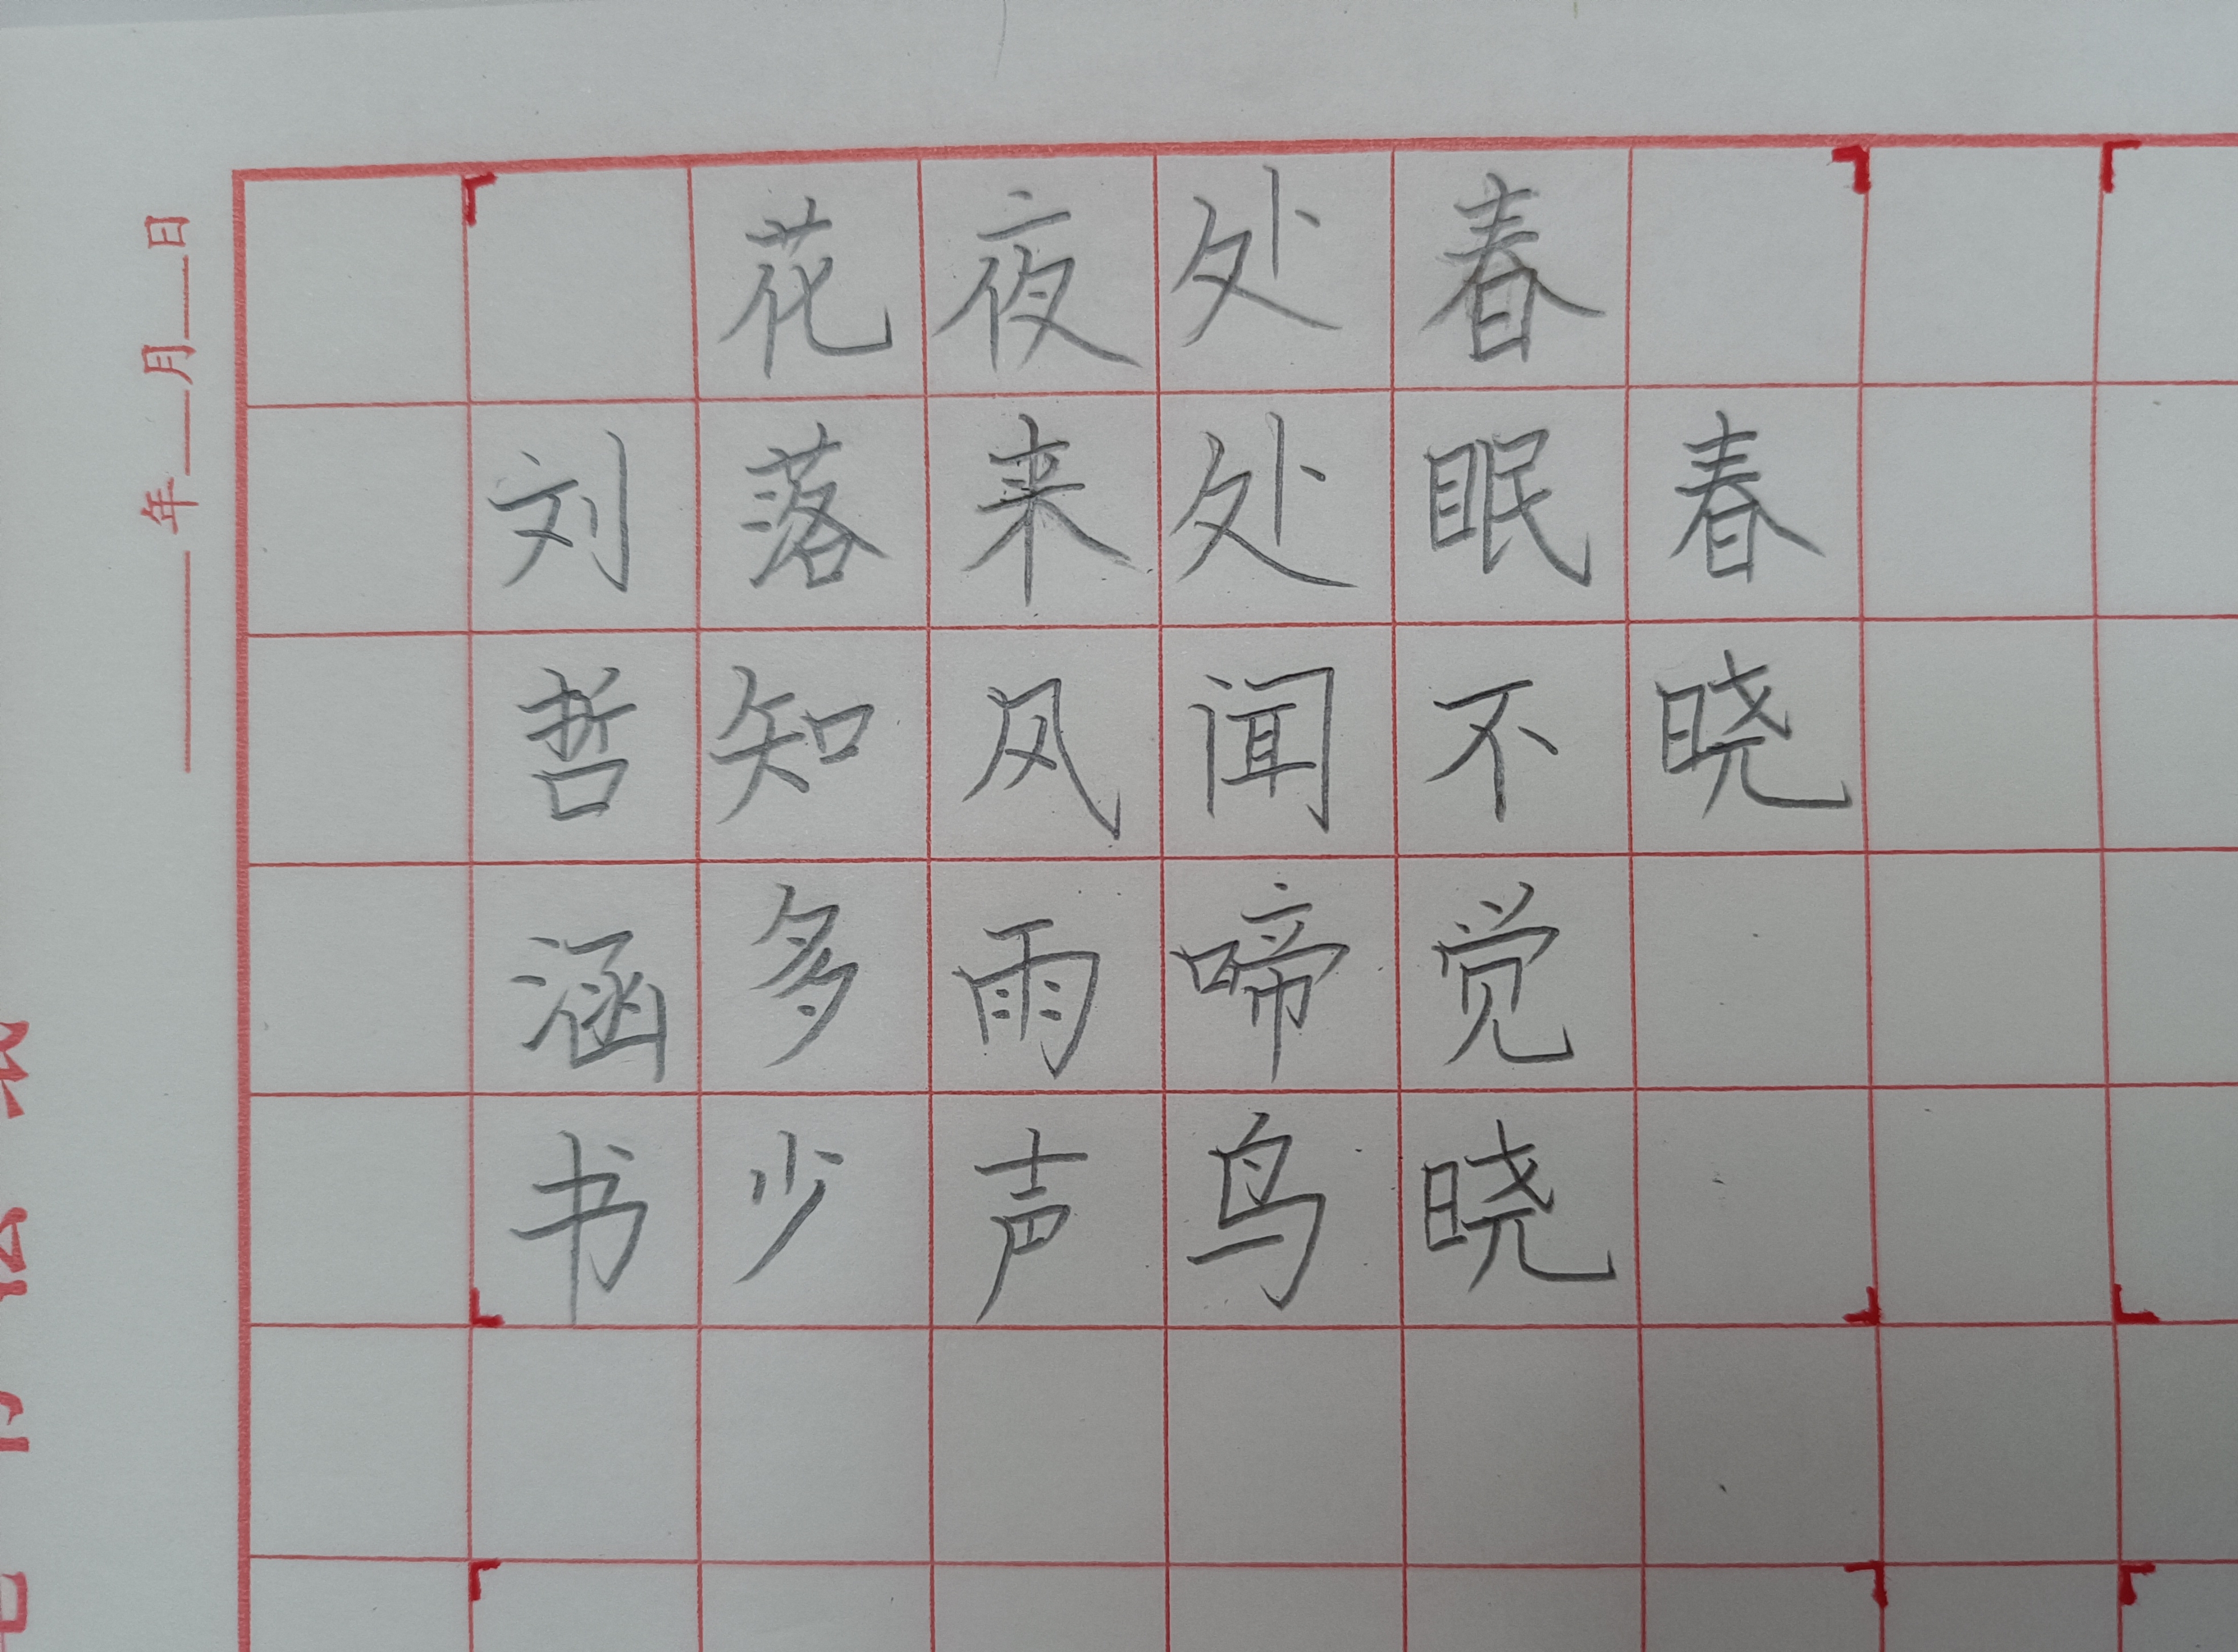 春晓
春眠不觉晓
处处闻啼鸟
夜来风雨声
花落知多少
刘哲涵书
年月日